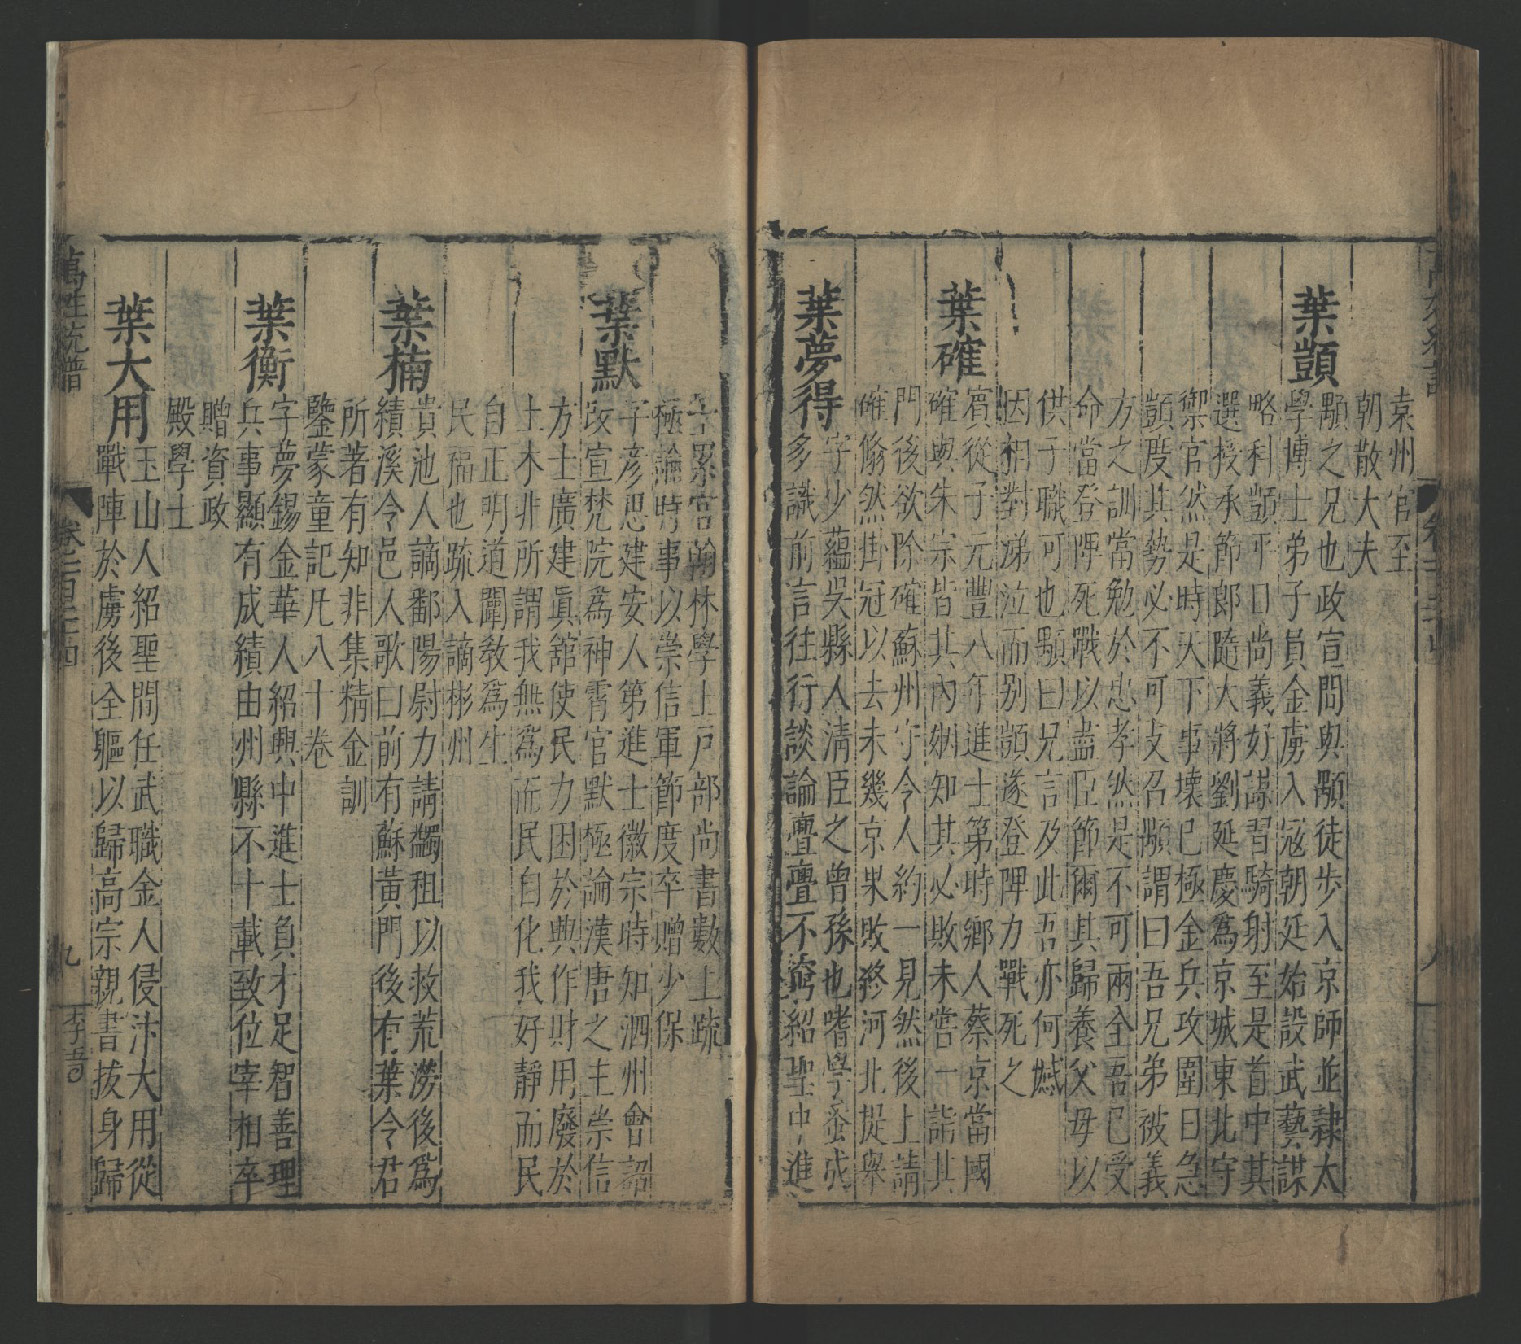 袁州官至
朝散大夫
葉顗
顒之兄也政宣間與顒徒步入京師並隷太
學博士弟子員金虜入冦朝廷始設武藝謀
略科顗平日尚義好謀習騎射至是首中其
選授承節郎隨大將劉延慶為京城東北守
禦官然是時天下事壞已極金兵攻圍日急
顗度其勢必不可支召顒謂曰吾兄弟被義
方之訓當勉於忠孝然是不可兩全吾已受
命當登陴死戰以盡臣節爾其歸養父母以
供子職可也顒曰兄言及此吾亦何憾
因相對涕泣而别顗遂登陴力戰死之
葉確
賔從子元豐八年進士第時鄉人蔡京當國
確與朱宗皆其内姻知其必敗未嘗一詣其
門後欲除確蘇州守令人約一見然後上請
確翛然掛冠以去未幾京果敗終河北提舉
葉夢得
字少蘊吳縣人清臣之曾孫也嗜學蚤成
多識前言往行談論亹亹不窮紹聖中進
士累官翰林學士戸部尚書數上疏
極論時事以崇信軍節度卒贈少保
葉默
字彦思建安人第進士徽宗時知泗州會詔
改宣梵院為神霄官默極論漢唐之主崇信
方士廣建眞舘使民力困於興作財用廢於
土木非所謂我無為而民自化我好靜而民
自正明道闡教為生
民福也疏入謫彬州
葉楠
貴池人謫鄱陽尉力請蠲租以救荒澇後為
績溪令邑人歌曰前有蘇黃門後有葉令君
所著有知非集精金訓
鑒蒙童記凡八十卷
葉衡
字夢錫金華人紹興中進士負才足智善理
兵事顯有成績由州縣不十載致位宰相卒
贈資政
殿學士
葉大用
玉山人紹聖間任武職金人侵汴大用從
戰陣於虜後全軀以歸高宗親書拔身歸
萬姓統譜
卷之百二十四
九
李吾